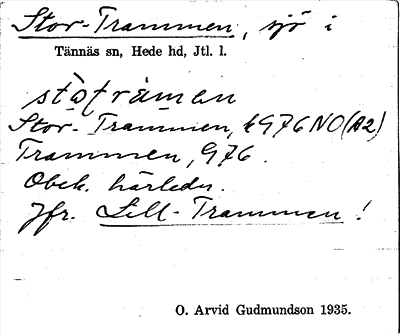 Stor-Trammen, sjö i
Tännäs sn, Hede hd, Jtl. l.
Stor-Trammen, k976NO(A2)
Trammen, 976.
Obek. härledn.
Jfr. Lill-Trammen!
O. Arvid Gudmundson 1935.